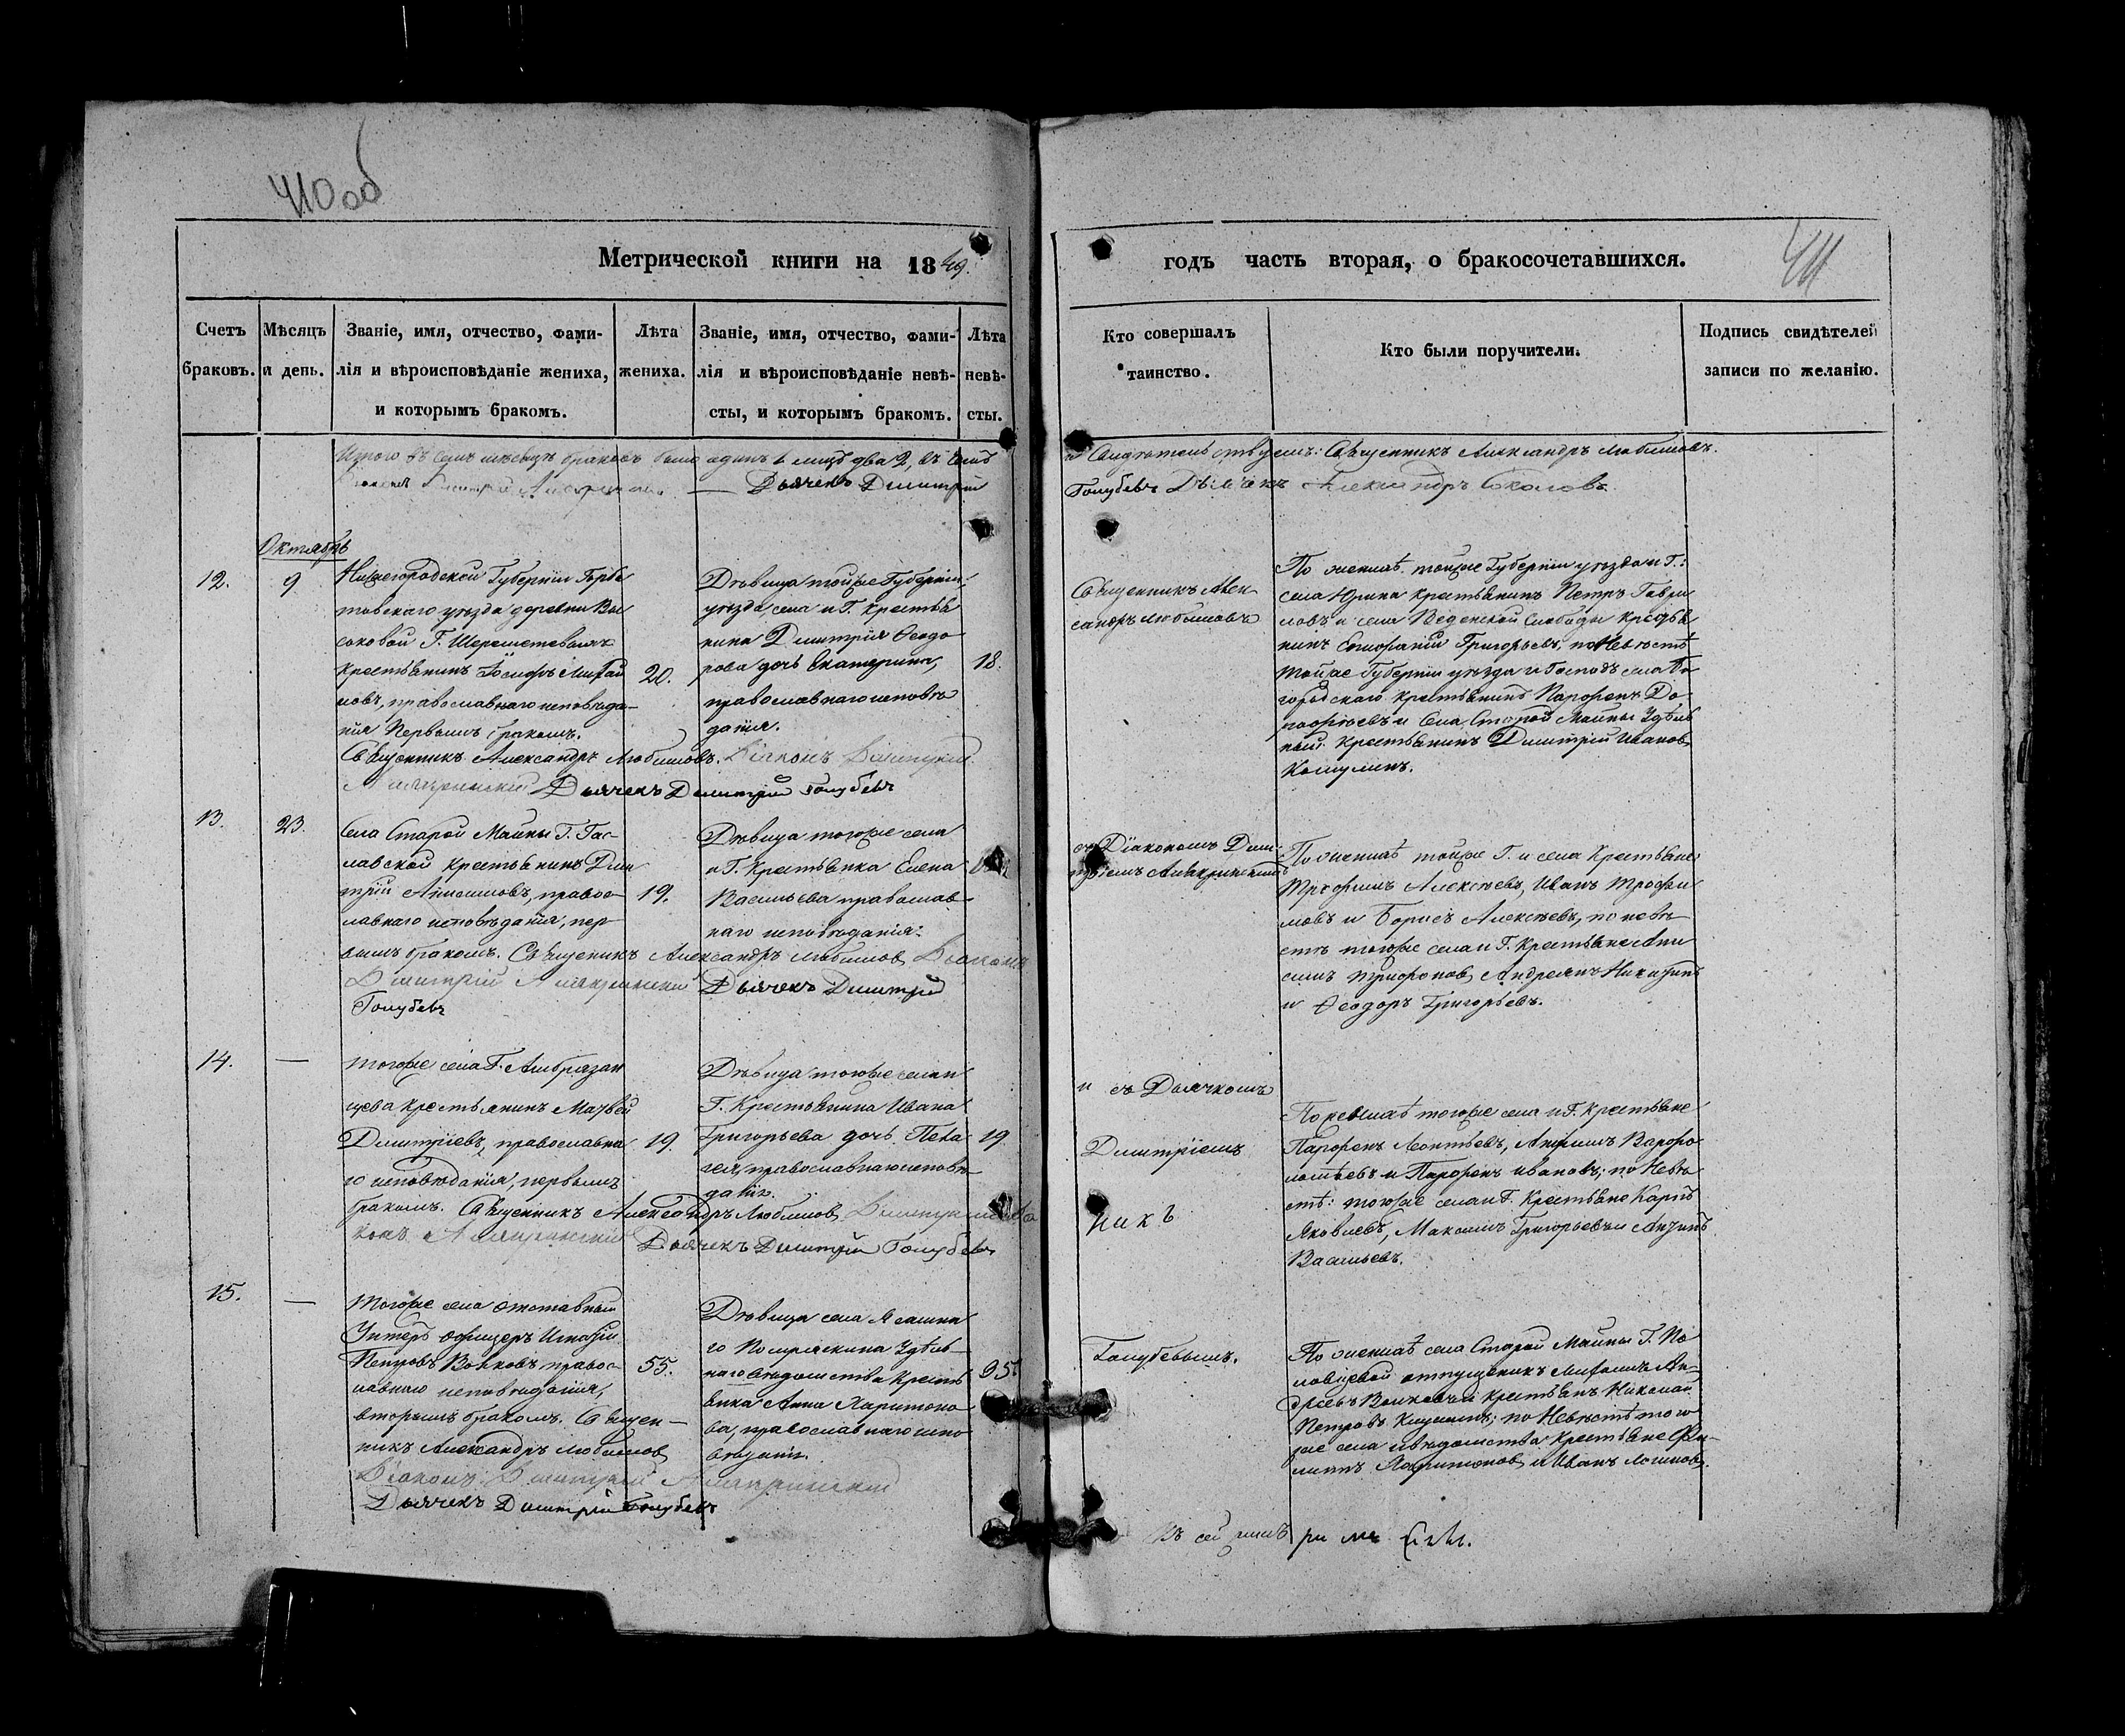 410 об
411
Метрической книги на 1849.
годъ часть вторая, о бракосочетавшихся.
Счетъ браковъ.
Мѣсяцъ и день.
Званіе, имя, отчество, фами-
лія и вѣроисповѣданіе жениха,
и которымъ бракомъ.
Лѣта
жениха.
Званіе, имя, отчество, фами-
лія и вѣроисповѣданіе невѣ-
сты, и которымъ бракомъ.
Лѣта
невѣ-
сты.
Кто совершалъ
таинство.
Кто были поручители.
Подпись свидѣтелей
записи по желанію.
Итого въ семъ мѣсяцѣ браковъ было одинъ 1 лицъ два 2, въ чемъ
Дьячекъ Димитрій
и Свидѣтельствуемъ: Священникъ Александръ Любимовъ.
Голубевъ Дьячекъ Александръ Соколовъ
Октябрь
12.
9
Нижегородской Губерніи Горба-
товскаго уѣзда деревни Вы
соковой Г. Шереметевыхъ
крестьянинъ Іосифъ Михай
ловъ, православнаго исповѣда-
нія первымъ бракомъ.
Священникъ Александръ Любимовъ. Діаконъ Димитрій
Дьячекъ Димитрій Голубевъ
20.
Дѣвица тойже Губерніи
уѣзда, села и Г. крестья
нина Димитрія Ѳеодо
рова дочь Екатерина,
православнаго исповѣ
данія.
18.
Священникъ Алек
сандръ Любимовъ
По женихѣ тойже Губерніи уѣзда и Г.:
села Юрина крестьянинъ Петръ Гаври
ловъ и села Слободы крестья
нинъ Григорьевъ, по Невѣстѣ
тойже Губерніи уѣзда и Господъ села Бо
городскаго крестьянинъ Парфенъ До
рофѣевъ и Села Старой Майны Удѣль
ный крестьянинъ Димитрій Ивановъ
13.
23.
Села Старой Майны Г.
крестьянинъ Дми
трій Анисимовъ, правос-
лавнаго исповѣданія, пер-
вымъ бракомъ. Священникъ Александръ Любимовъ Діаконъ
Димитрій Дьячекъ Димитрій
Голубевъ
19.
Дѣвица тогоже села
и Г. Крестьянка Елена
Васильева православ-
наго исповѣданія.
съ Діакономъ Дими-
тріемъ
По женихѣ тойже Г. и села Крестьяне
Трофимъ Алексѣевъ, Иванъ Трофи
мовъ и Борисъ Алексѣевъ, по невѣ-
стѣ тогоже села и Г. Крестьяне Ани
симъ Трифоновъ, Андреянъ Никитинъ
и Ѳеодоръ Григорьевъ.
14.
—
Тогоже села Г. Амбразан
цева крестьянинъ Матвей
Димитріевъ, православна
го исповѣданія, первымъ
бракомъ. Священникъ Александръ Любимовъ Димитрій
Дьячекъ Димитрій Голубевъ
19.
Дѣвица тогоже села и
Г. Крестьянина Ивана
Григорьева дочь Пела
гея, православнаго исповѣ-
данія.
19
и съ Дьячкомъ
Димитріемъ
По женихѣ тогоже села и Г. Крестьяне
Парфенъ Леонтьевъ, Варфо
ломѣевъ и Парфенъ Ивановъ; по Невѣ
стѣ: тогоже села и Г. Крестьяне Карпъ
Яковлевъ, Максимъ Григорьевъ и
Васильевъ.
15.
—
Тогоже села отставный
Унтеръ Офицеръ Игнатій
Петровъ Волковъ, правос-
лавнаго исповѣданія,
вторымъ бракомъ. Священ-
никъ Александръ Любимовъ
Діаконъ Димитрій
Дьячекъ Димитрій Голубевъ
55.
Дѣвица села Ясашна
го Помряскина Удѣль-
наго вѣдомства Кресть
янка Анна Харитоно-
ва, православнаго испо
вѣданія.
35.
Голубевымъ.
По женихѣ села Старой Майны Г. По
ловцевой отпущеникъ Ан-
дреевъ Волковъ и крестьянъ Николай
Петровъ по Невѣстѣ того
же села и вѣдомства Крестьяне Фи-
липпъ Харитоновъ и Иванъ Логиновъ.